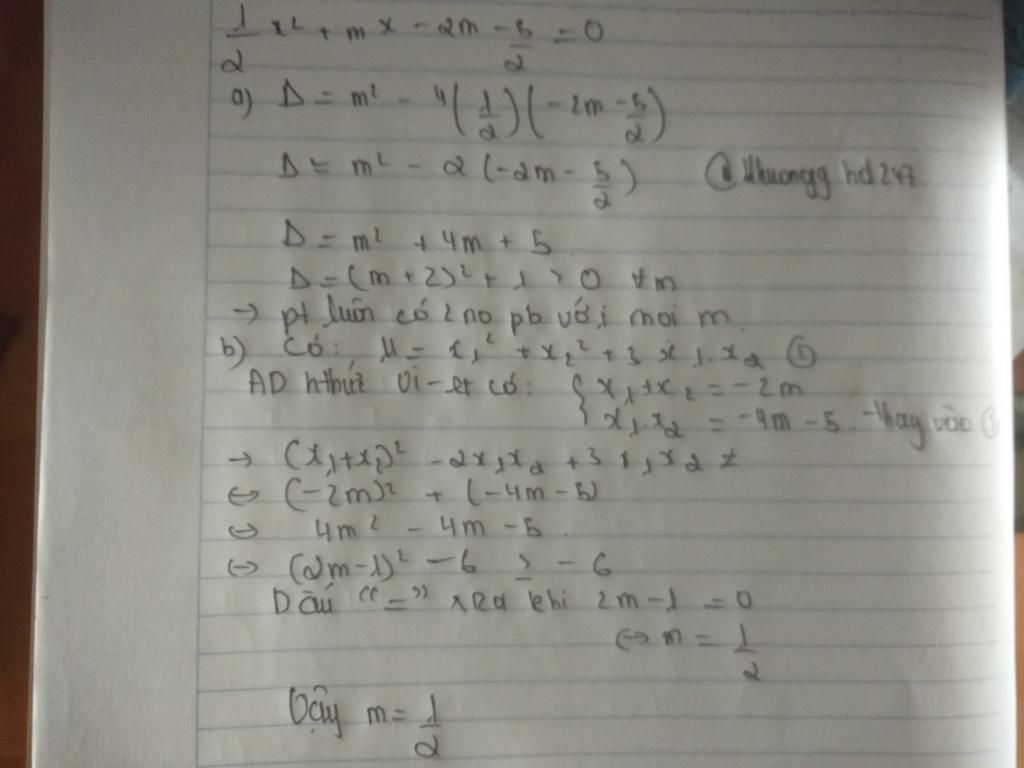 1/2 x² + mx - 2m - 5/2 = 0
a) Δ = m² - 4(1/2)(-2m - 5/2)
Δ = m² - 2(-2m - 5/2)
Δ = m² + 4m + 5
Δ = (m+2)² + 1 > 0 ∀m
→ pt luôn có 2 no pb với mọi m
b) Có: M = x₁² + x₂² + 3x₁.x₂ ①
AD hthức Vi-et có: { x₁+x₂ = -2m
x₁.x₂ = -4m - 5 Thay vào ①
→ (x₁+x₂)² - 2x₁x₂ + 3x₁x₂
⇔ (-2m)² + (-4m-5)
⇔ 4m² - 4m - 5
⇔ (2m-1)² - 6 ≥ -6
Dấu "=" xRa khi 2m-1 = 0
⇔ m = 1/2
Vậy m = 1/2